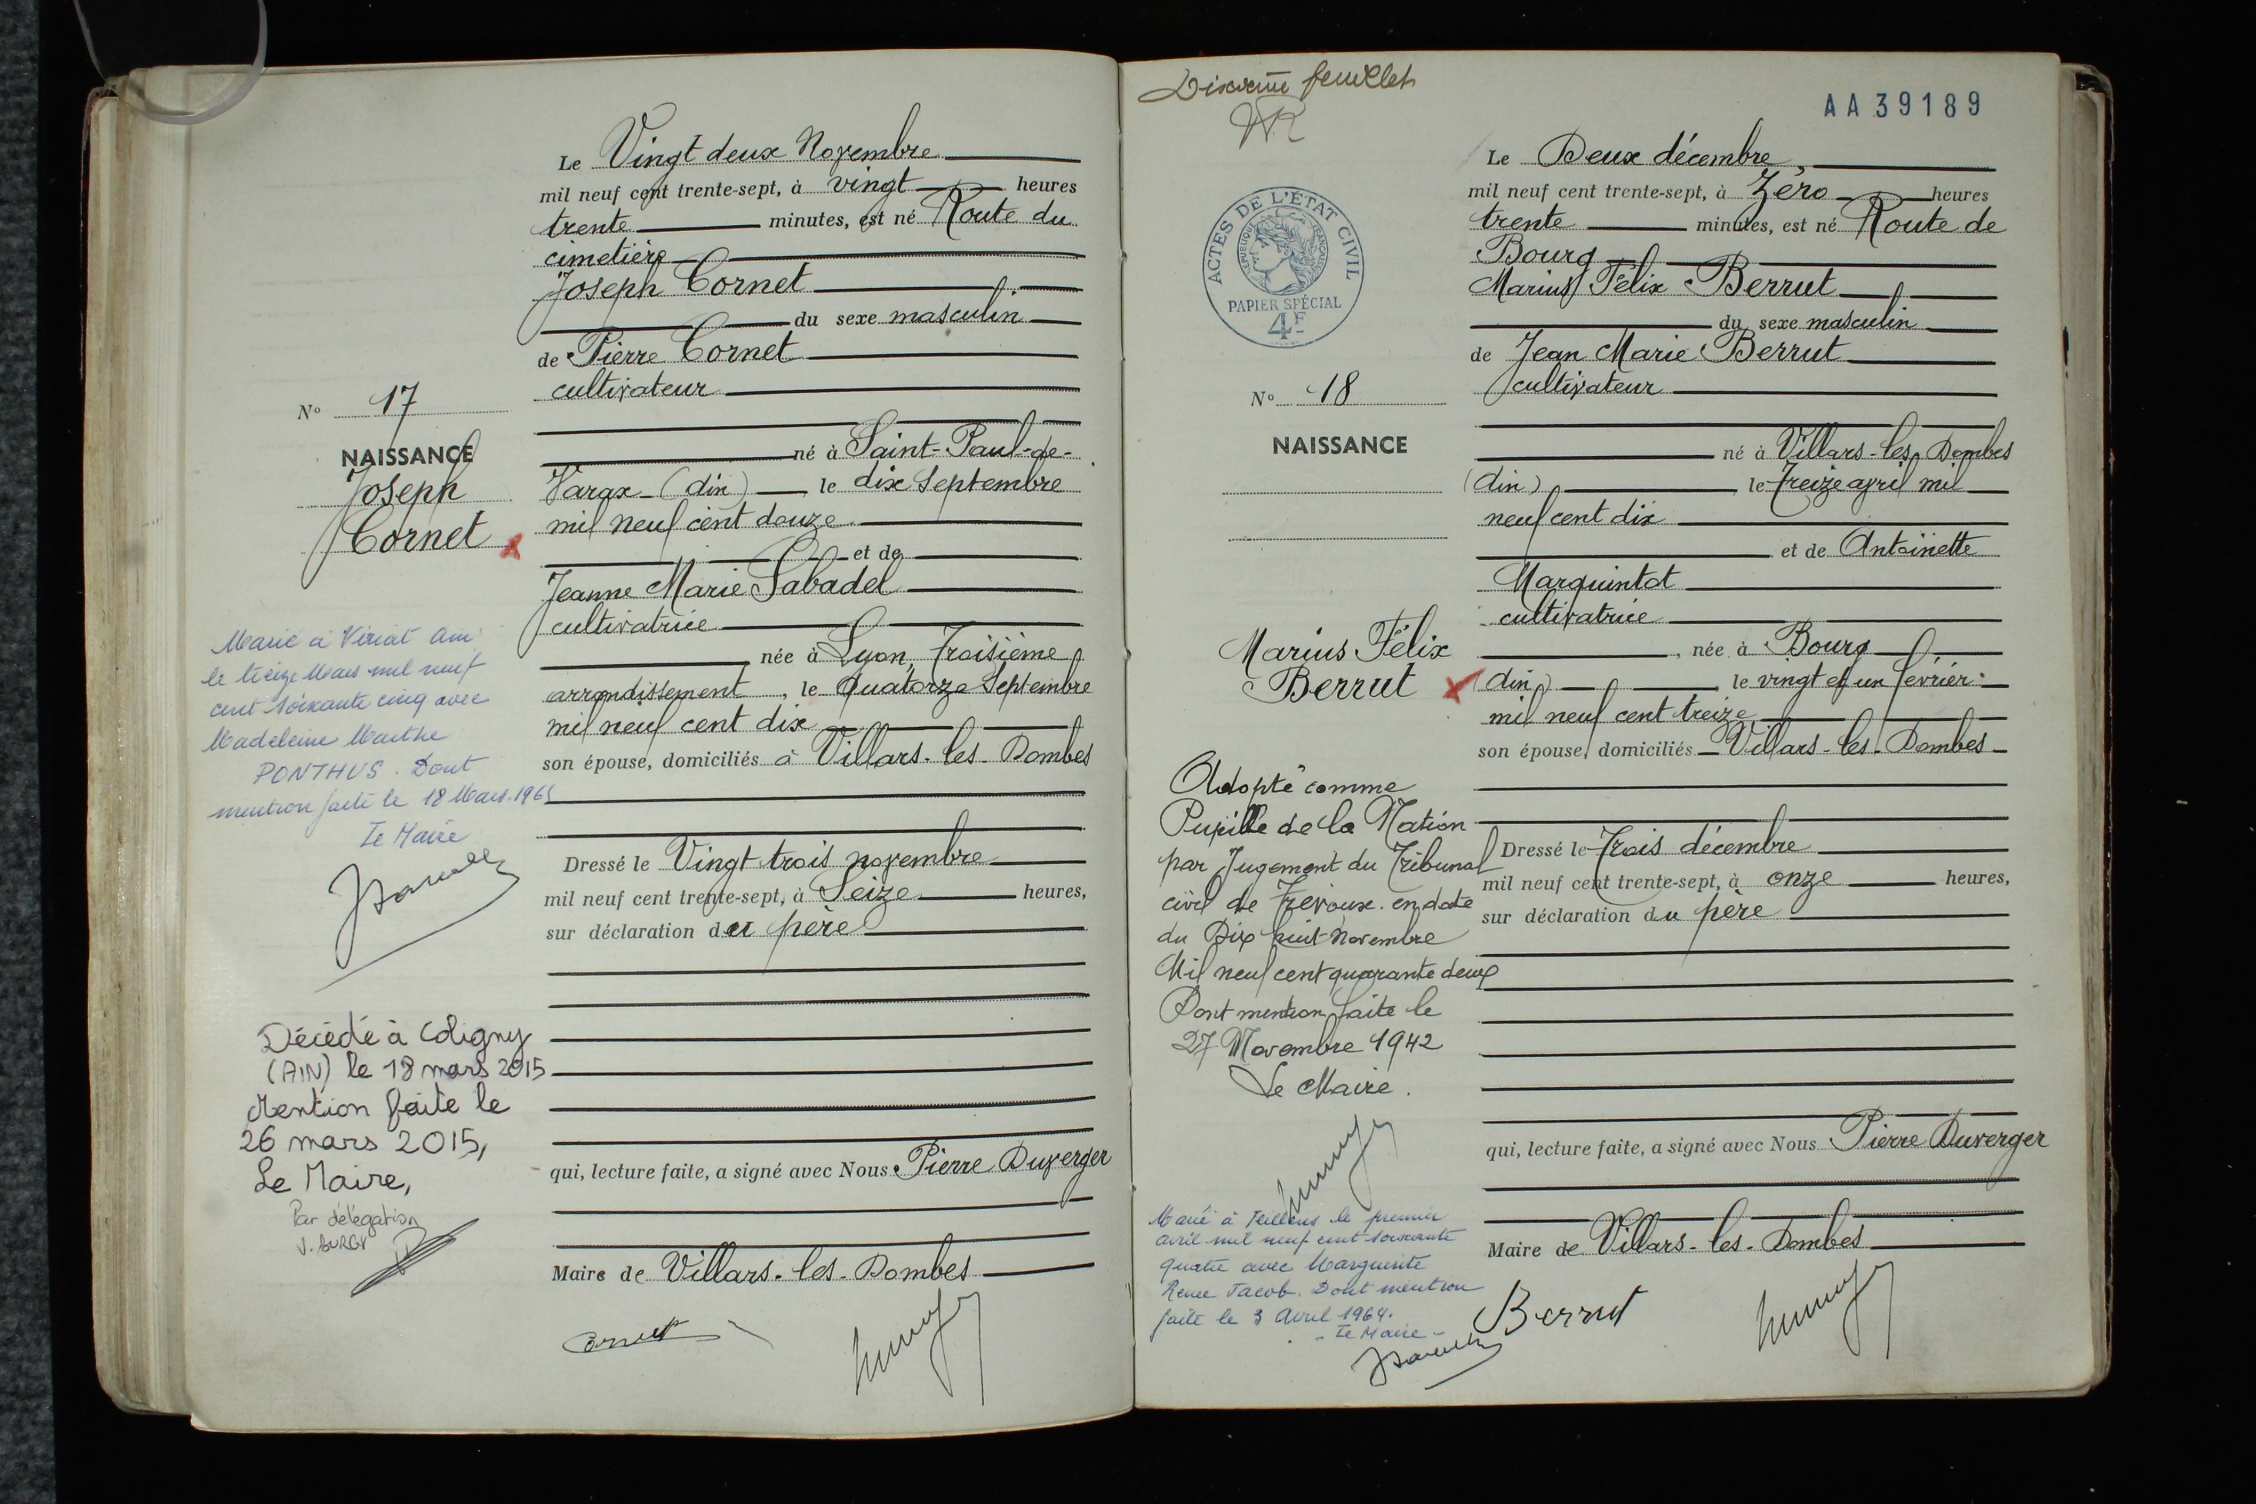 Le Vingt deux Novembre
mil neuf cent trente-sept, à vingt heures
trente minutes, est né Route du
cimetière
Joseph Cornet
du sexe masculin
de Pierre Cornet
cultivateur
né à Saint-Paul-de-
Varax (Ain) le dix Septembre
mil neuf cent douze
et de
Jeanne Marie Sabadel
cultivatrice
née à Lyon, Troisième
arrondissement, le Quatorze Septembre
mil neuf cent dix
son épouse, domiciliés à Villars-les-Dombes
Dressé le Vingt trois novembre
mil neuf cent trente-sept, à Seize heures,
sur déclaration du père
qui, lecture faite, a signé avec Nous Pierre Duverger
Maire de Villars-les-Dombes
Cornet
No 17
NAISSANCE
Joseph
Cornet
Marié à Viriat Ain
le treize Mars mil neuf
cent soixante cinq avec
Madeleine Marthe
PONTHUS. Dont
mention faite le 18 Mars 1965
Le Maire
Décédé à Coligny
(AIN) le 18 mars 2015
Mention faite le
26 mars 2015,
Le Maire,
Par délégation
V. BURGY
feuillet
AA39189
ACTES DE L'ÉTAT CIVIL
RÉPUBLIQUE FRANÇAISE
PAPIER SPÉCIAL
4F
Le Deux décembre,
mil neuf cent trente-sept, à Zéro heures
trente minutes, est né Route de
Bourg
Marius Félix Berrut
du sexe masculin
de Jean Marie Berrut
cultivateur
né à Villars-les-Dombes
(Ain) le Treize avril mil
neuf cent dix
et de Antoinette
Marquintot
cultivatrice
, née à Bourg
(Ain) le vingt et un février
mil neuf cent treize
son épouse, domiciliés Villars-les-Dombes
Dressé le Trois décembre
mil neuf cent trente-sept, à onze heures,
sur déclaration du père
qui, lecture faite, a signé avec Nous Pierre Duverger
Maire de Villars-les-Dombes
Berrut
No 18
NAISSANCE
Marius Félix
Berrut
Adopté comme
Pupille de la Nation
par Jugement du Tribunal
civil de Trévoux en date
du Dix huit Novembre
Mil neuf cent quarante deux
Dont mention faite le
27 Novembre 1942
Le Maire.
Marié à le premier
avril mil neuf cent soixante
quatre avec Marguerite
Renée Jacob. Dont mention
faite le 3 Avril 1964.
- Le Maire -